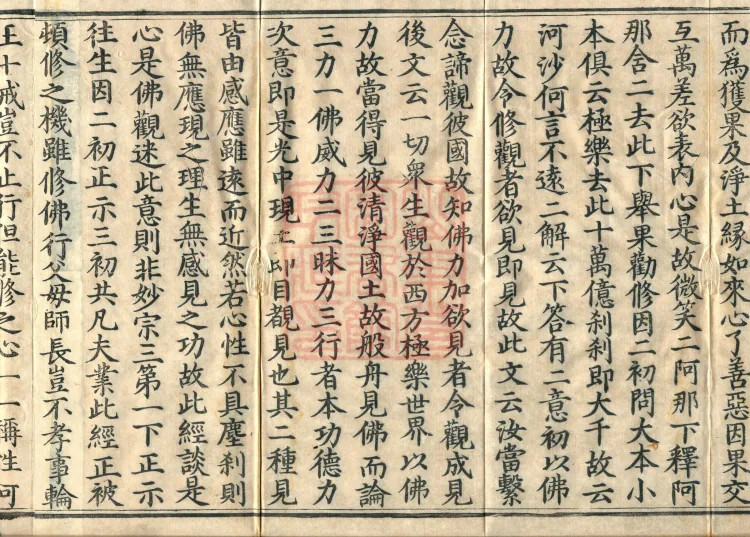 而爲獲果及淨土緣如來心了善惡因果交
互萬差欲表內心是故微笑二阿那下釋阿
那舍二去此下舉果勸修因二初問大本小
本俱云極樂去此十萬億刹刹即大千故云
河沙何言不遠二解云下答有二意初以佛
力故令修觀者欲見即見故此文云汝當繫
念諦觀彼國故知佛力加欲見者令觀成見
後文云一切衆生觀於西方極樂世界以佛
力故當得見彼清淨國土故般舟見佛而論
三力一佛威力二三昧力三行者本功德力
次意即是光中現土即目覩見也其二種見
皆由感應雖遠而近然若心性不具塵刹則
佛無應現之理生無感見之功故此經談是
心是佛觀迷此意則非妙宗三第一下正示
往生因二初正示三初共凡夫業此經正被
頓修之機雖修佛行父母師長豈不孝事輪
王十戒豈不止行但能修之心一一稱性何